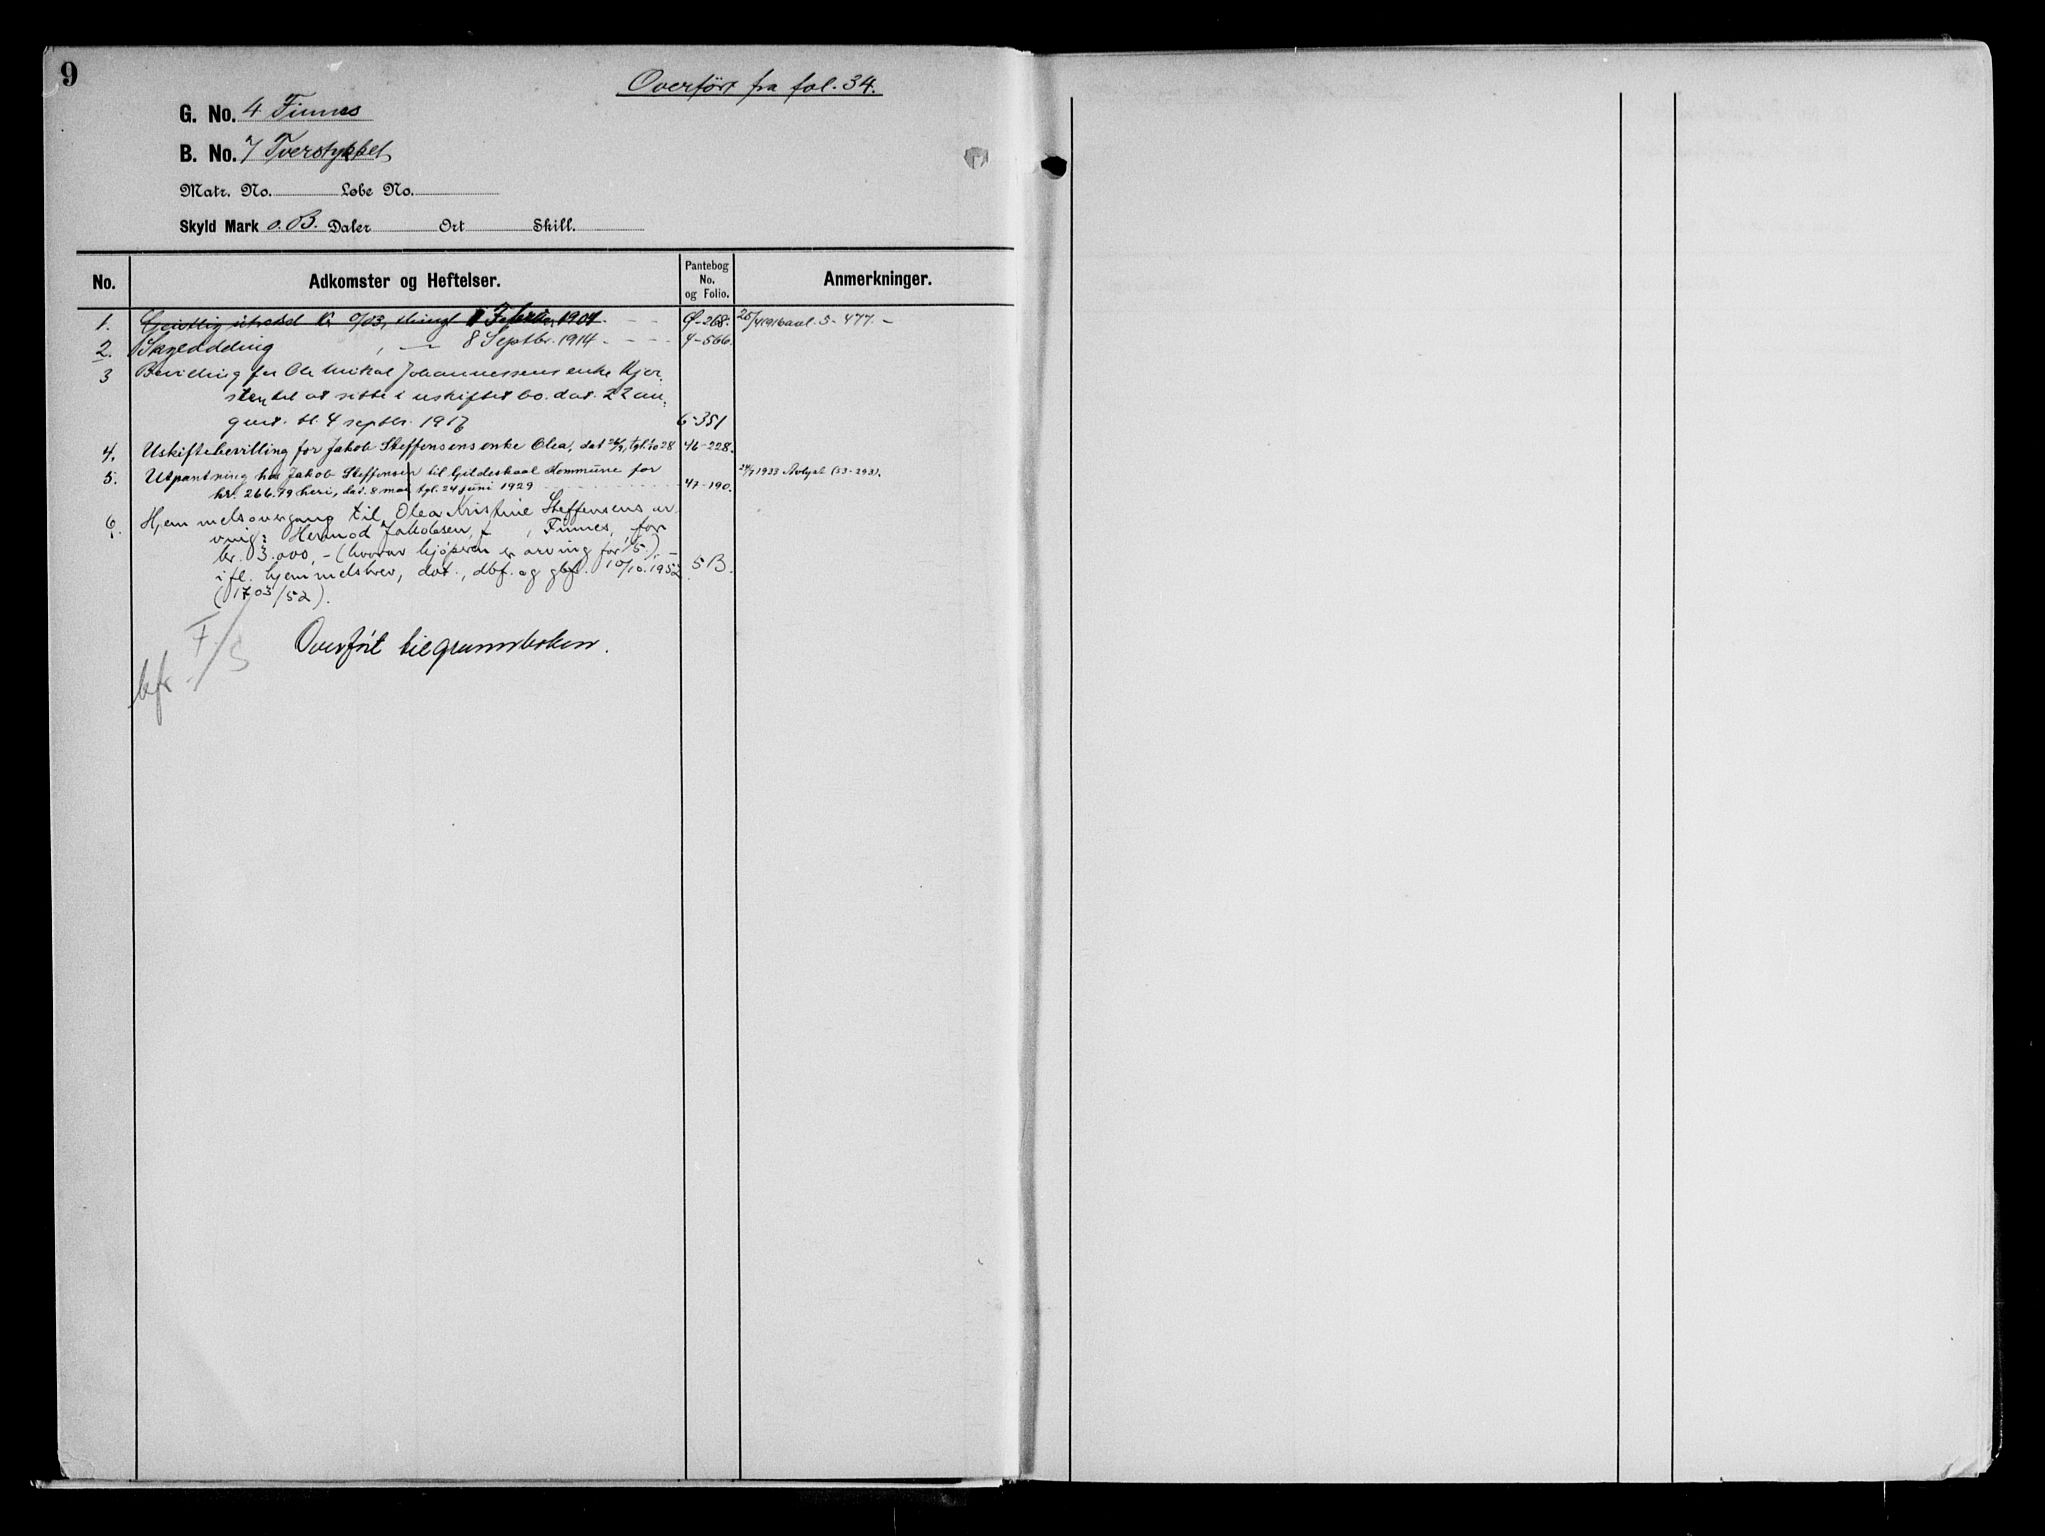 9
Overført fra fol. 34.
G. No. 4 Finnes
B. No. 7 Tverstykket
Matr. No. Løbe No.
Skyld Mark 0. Daler Ort Skill.
No. Adkomster og Heftelser. Pantebog No. og Folio. Anmerkninger.
1. 1904 Ø-268. 25/4 1916 avl. 5-477.-
2. Skylddeling " 8 Septbr. 1914 4-566.
3 Bevilling for Ole Mikal Johannessens enke Kjer-
sten til at sitte i uskiftet bo. dat. 22 au-
gust. tl. 4 septbr. 1916 6-351
4. Uskiftebevilling for Jakob Steffensens enke Olea, dat 46-228.
5. Utpantning hos Jakob Steffensen til Gildeskaal Kommune for 1933 Avlyst (53-293).
kr. 266.79 heri, dat. 8 mai tgl. 24 juni 1929 47-190.
6. Hjemmelsovergang til Olea Kristine Steffensens ar-
ving: Hermod Jakobsen, f. , Finnes, for
kr. 3.000,- (hvorav kjøperen er arving for 1/5) -
ifl. hjemmelsbrev, dat., dbf. og gbf. 10/10.1952 5B.
(1703/52).
Overført til grunnboken.
bfr. F/S